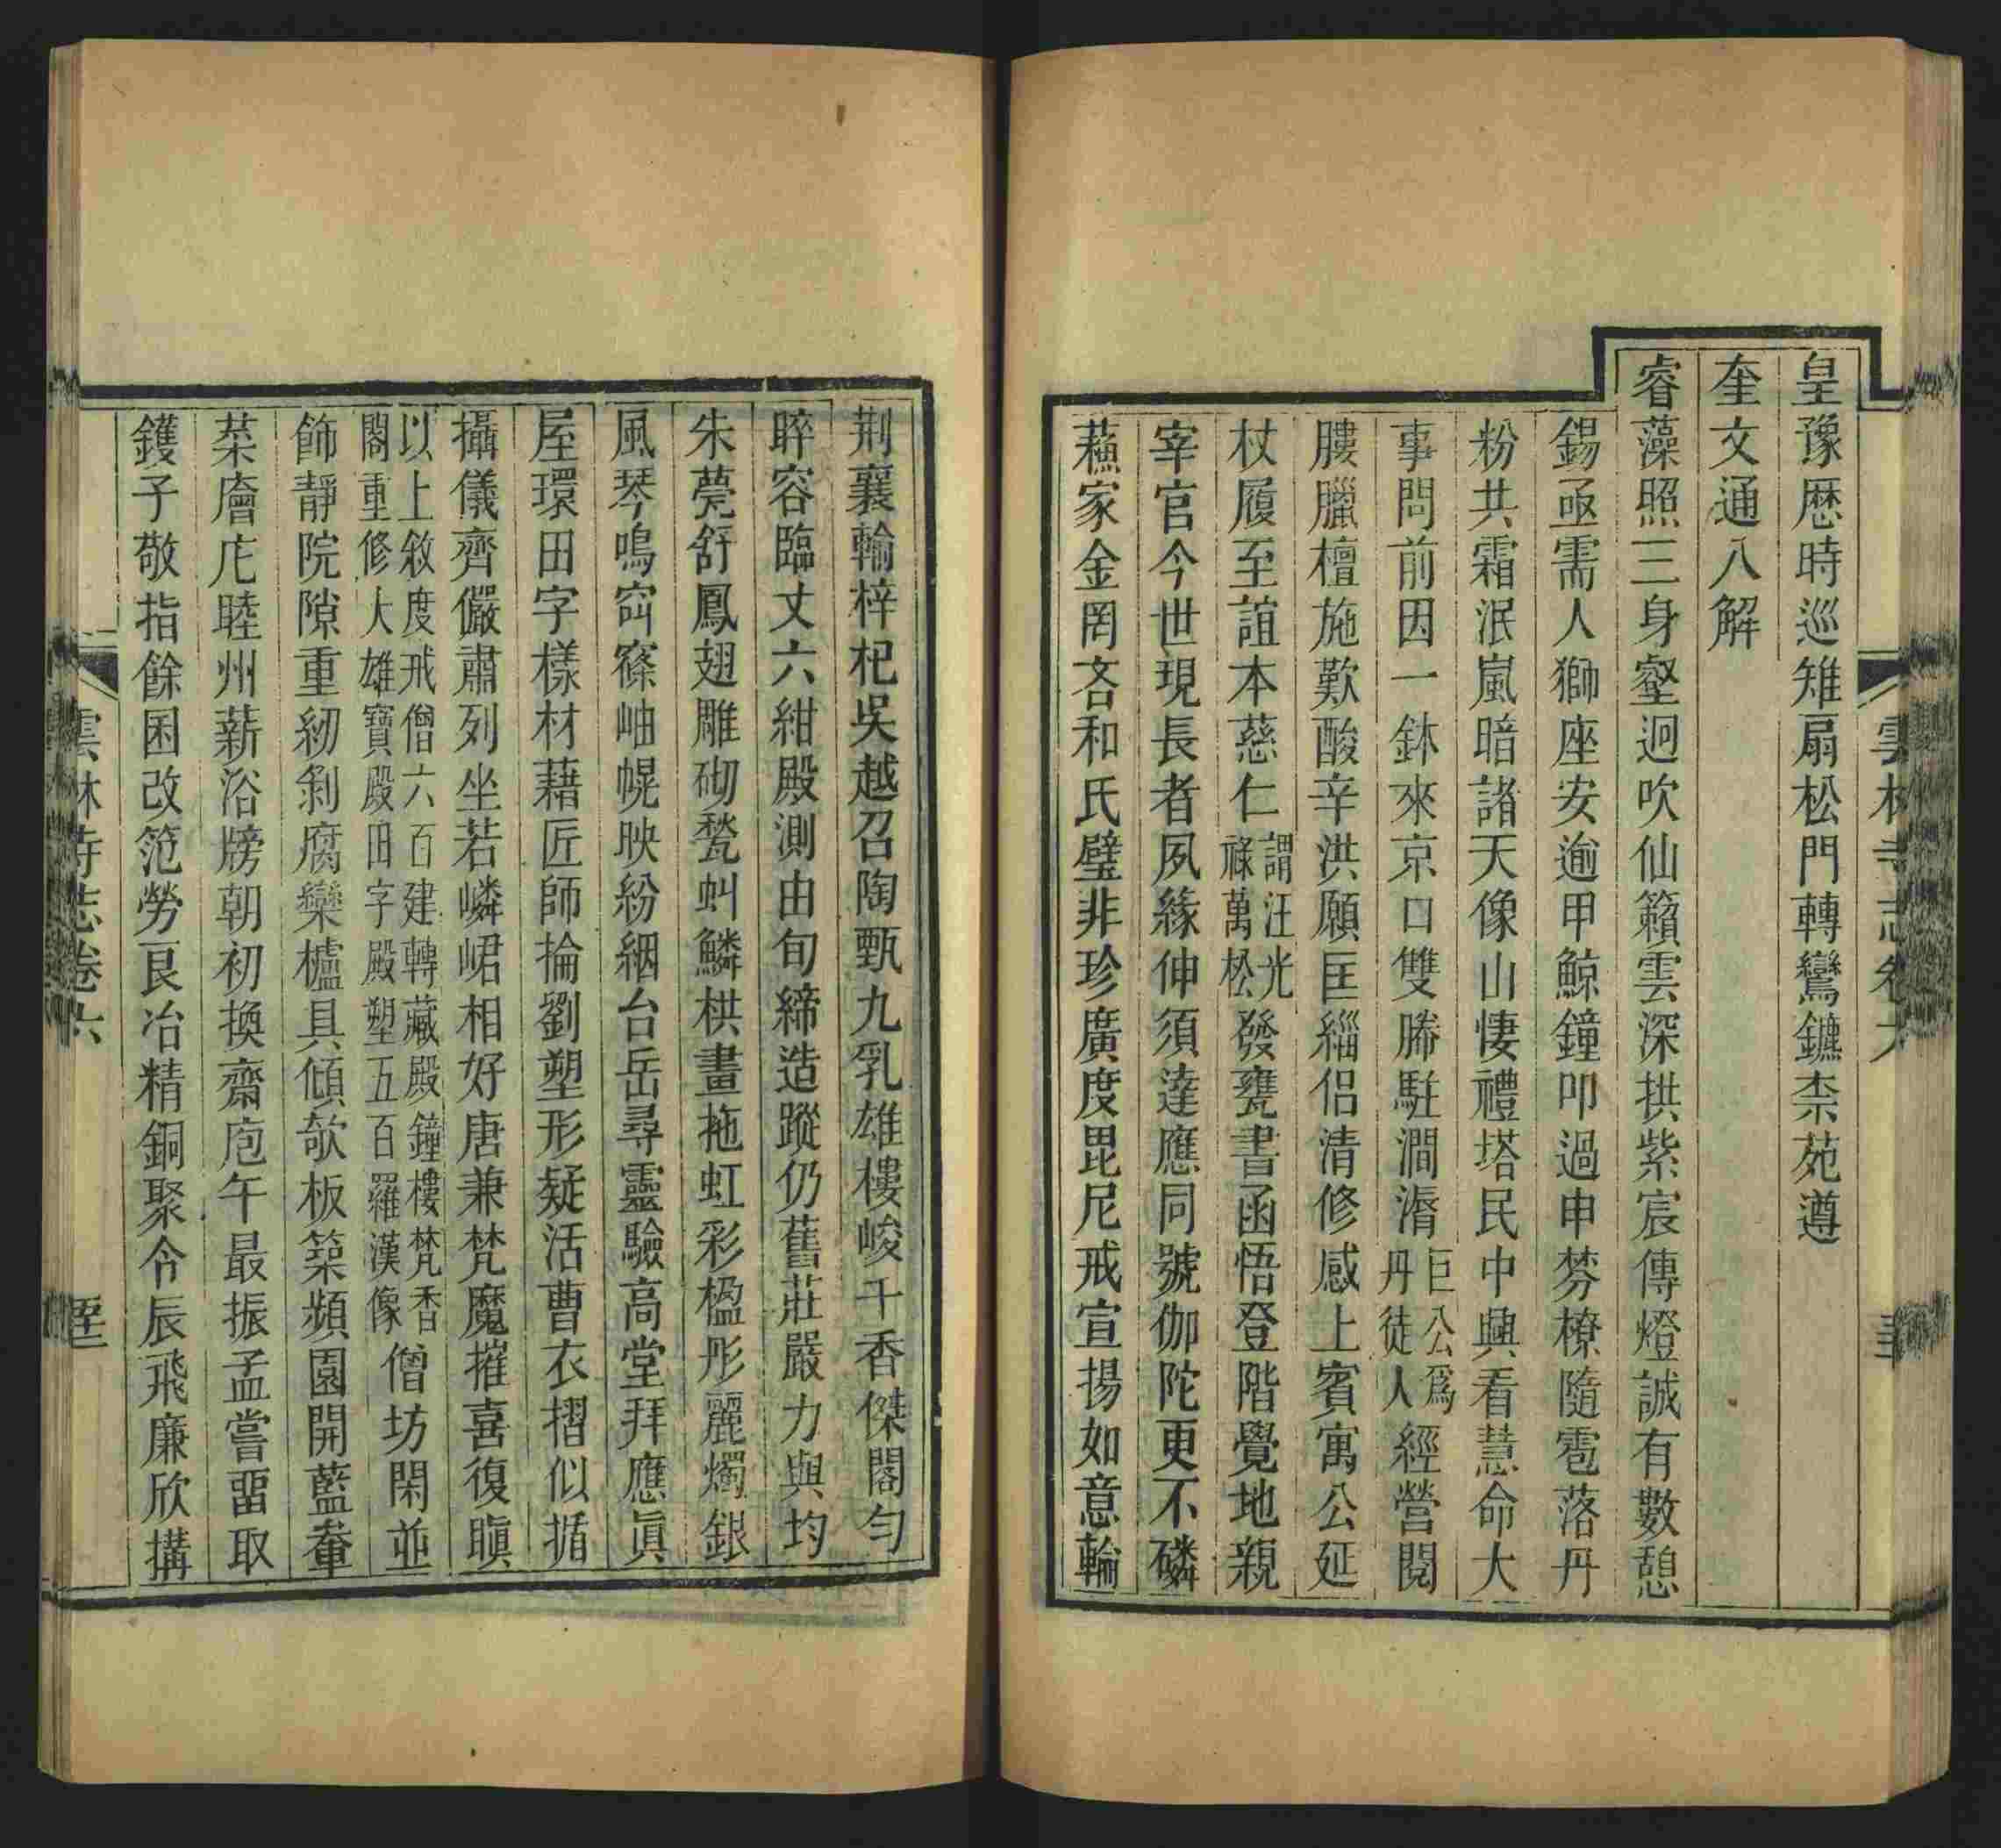 皇豫歴時巡雉扇松門轉鸞鑣柰苑遵
奎文通八解
睿藻照三身壑迥吹仙籟雲深拱紫宸傳燈誠有數憩
錫亟需人獅座安逾甲鯨鐘叩過申棼橑隨雹落丹
粉共霜泯嵐暗諸天像山悽禮塔民中興看慧命大
事問前因一鉢來京口雙幐駐澗漘巨公爲丹徒人經營閱
膢臘檀施歎酸辛洪願匡緇侶清修感上賓寓公延
杖履至誼本慈仁謂汪光祿萬松發甕書函悟登階覺地親
宰官今世現長者夙緣伸須達應同號伽陀更不磷
蘓家金罔吝和氏璧非珍廣度毘尼戒宣揚如意輪
雲林寺志卷六
荆襄輸梓杞吳越召陶甄九乳雄樓峻千香傑閣勻
睟容臨丈六紺殿測由旬締造蹤仍舊莊嚴力與均
朱甍舒鳳翅雕砌甃虯鱗栱畫拖虹彩楹彤麗燭銀
風琴鳴窅窱岫幌映紛絪台岳尋靈驗高堂拜應眞
屋環田字樣材藉匠師掄劉塑形疑活曹衣摺似揗
攝儀齊儼肅列坐若嶙峮相好唐兼梵魔摧喜復瞋
以上敘度戒僧六百建轉藏殿鐘樓梵香閣重修大雄寶殿田字殿塑五百羅漢像僧坊閑並
飾靜院隙重紉剝腐欒櫨具傾欹板築頻園開藍輋
菜廥庀睦州薪浴牓朝初換齋庖午最振孟嘗畱取
鑊子敬指餘囷改范勞艮冶精銅聚令辰飛廉欣搆
雲林寺志卷六